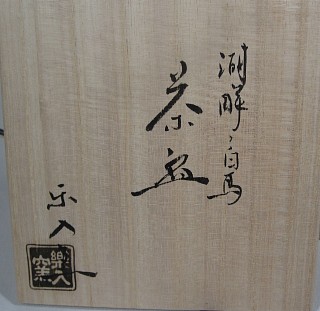 湖畔之白馬
茶盌
楽入
樂入窯